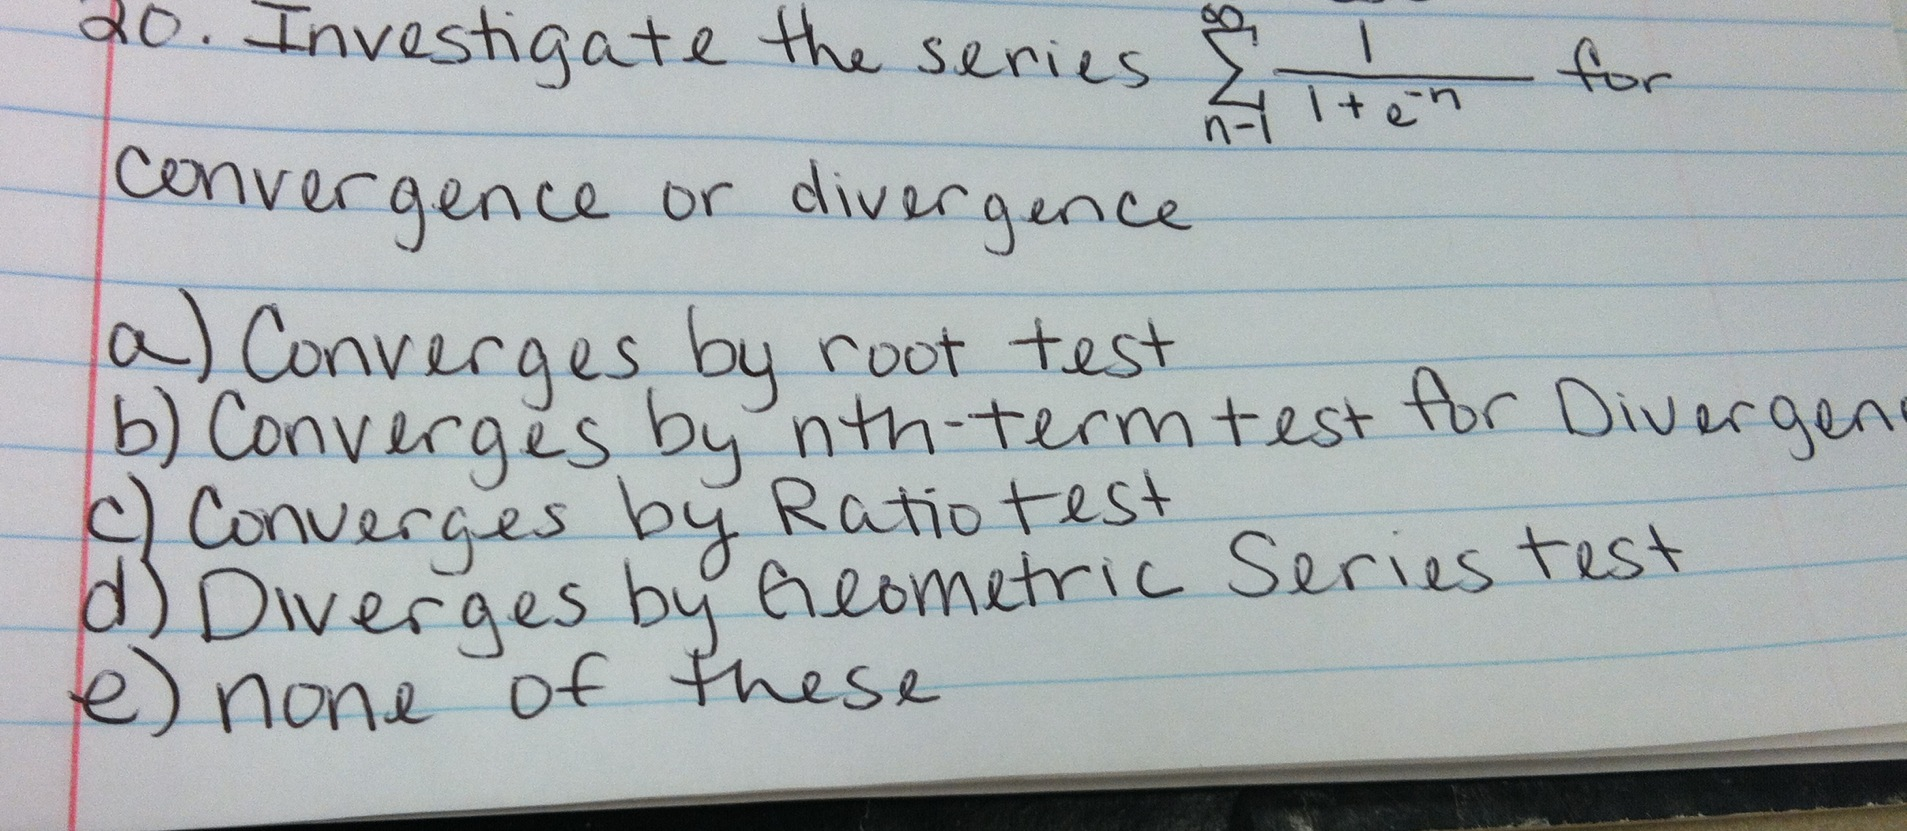 20. Investigate the series ∞ Σ n-1 1/(1+e^-n) for
convergence or divergence
a) Converges by root test
b) Converges by nth-term test for Divergen
c) Converges by Ratio test
d) Diverges by Geometric Series test
e) none of these